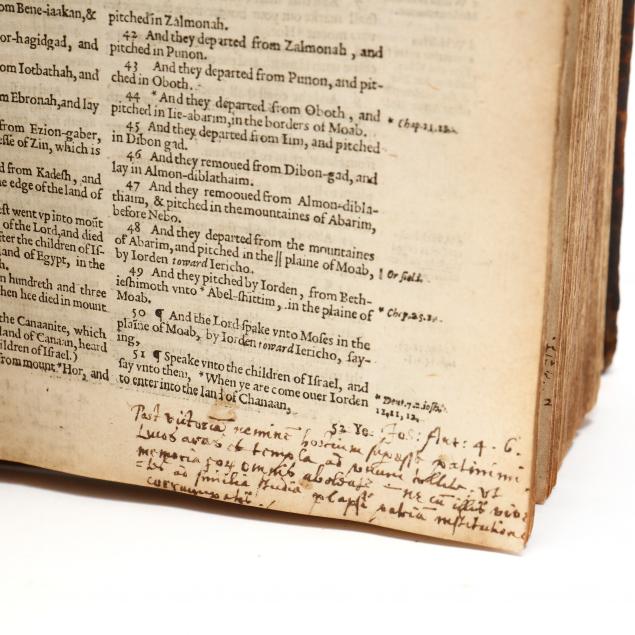 om Bene-iaakan,&
or-hagidgad, and
om Iotbathah, and
m Ebronah, and lay
from Ezion-gaber,
esse of Zin, which is
d from Kadesh, and
e edge of the land of
est went vp into moūt
of the Lord, and died
fter the children of Is-
and of Egypt, in the
h.
n hundreth and three
hen hee died in mount
the Canaanite, which
land of Canaan, heard
ildren of Israel.)
from mount *Hor, and
pitched in Zalmonah.
42 And they departed from Zalmonah, and
pitched in Punon.
43 And they departed from Punon, and pit-
ched in Oboth.
44 *And they departed from Oboth, and
pitched in Iie-abarim, in the borders of Moab.
45 And they departed from Iim, and pitched
in Dibon gad.
46 And they remoued from Dibon-gad, and
lay in Almon-diblathaim.
47 And they remooued from Almon-dibla-
thaim, & pitched in the mountaines of Abarim,
before Nebo.
48 And they departed from the mountaines
of Abarim, and pitched in the || plaine of Moab,
by Iorden toward Iericho.
49 And they pitched by Iorden, from Beth-
ieshimoth vnto * Abel-shittim, in the plaine of
Moab.
50 ¶ And the Lord spake vnto Moses in the
plaine of Moab, by Iorden toward Iericho, say-
ing,
51 ¶ Speake vnto the children of Israel, and
say vnto them, *When ye are come ouer Iorden
to enter into the land of Chanaan,
52 Ye
* Chap.21.
|| Or field.
* Chap.25.
* Deut.7.2. iosh.
11,11,12.
Jos: Ant: 4. 6.
Post victoria nemine hostium
Lucos aras et templa ad unum tollite. ut
memoria omnis
ad similia studia plapsi patriā institutione